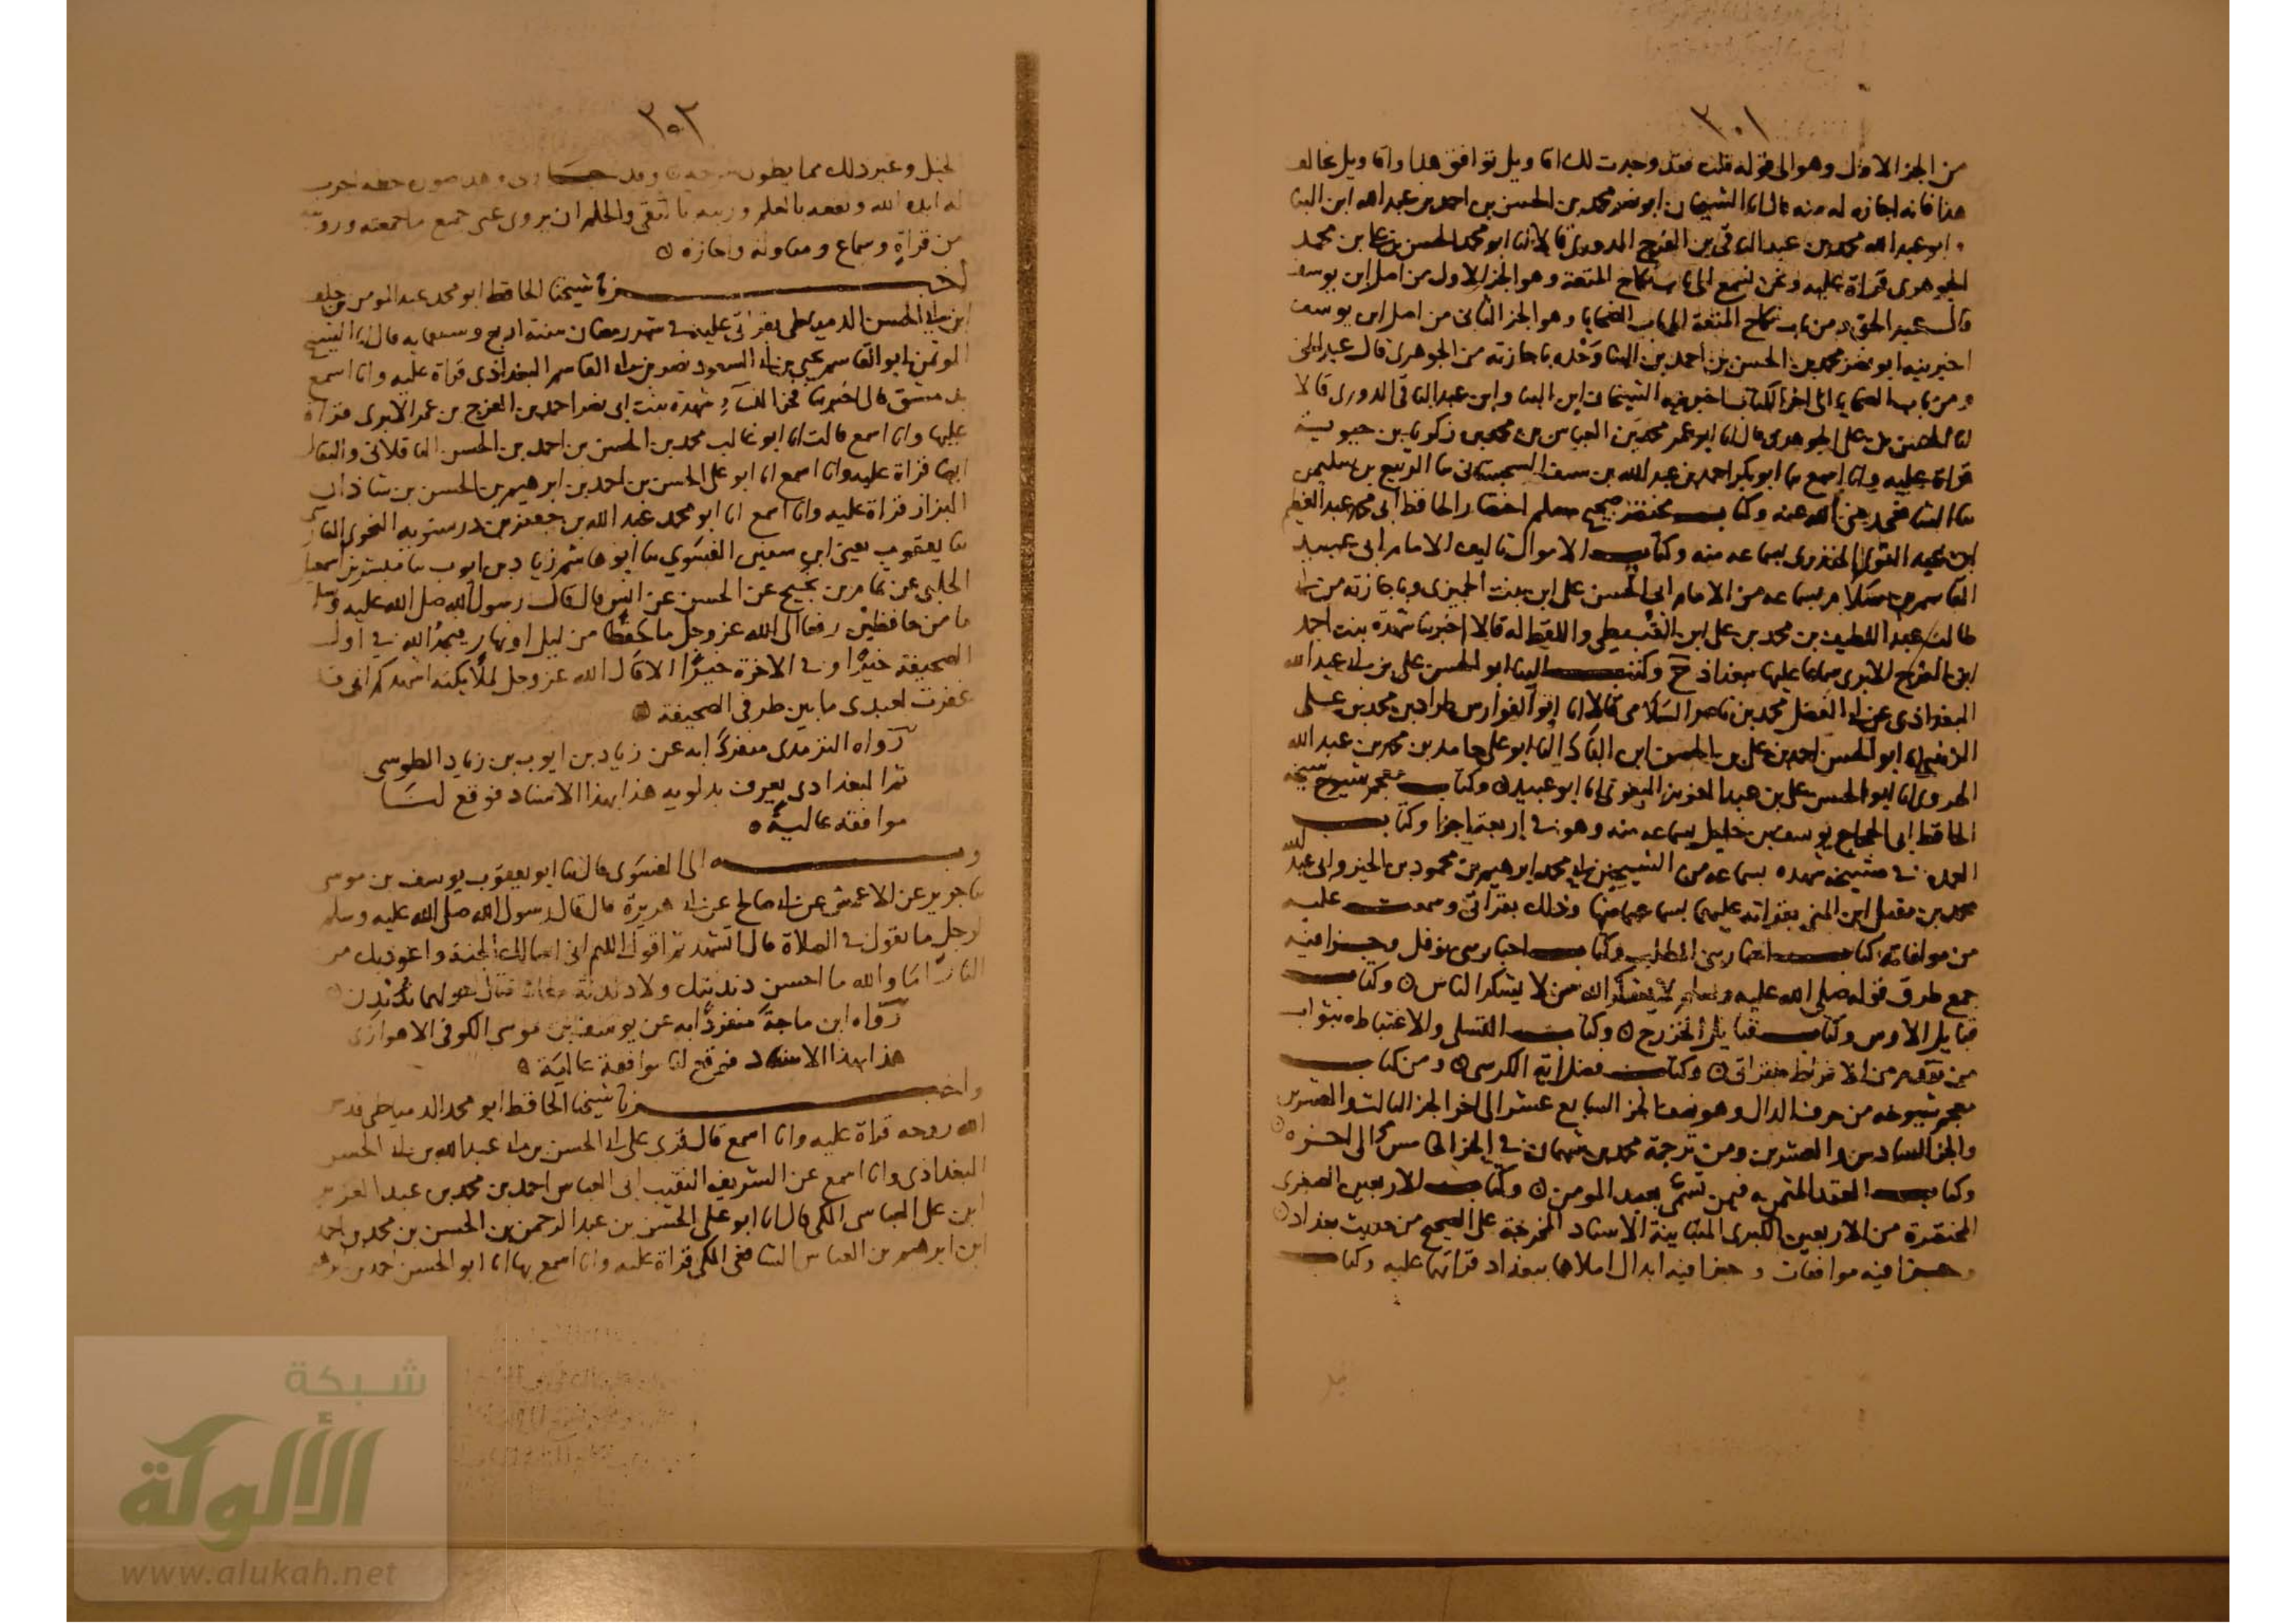 ٣٠١
من الجز الاول وهو الى قوله قلت فقد وجدت لك اتاويل توافق هذا واتاويل تخالف
هذا فانه اجازه له منه قال انا الشيخان ابو نصر محمد بن الحسن بن احمد بن عبد الله ابن البنا
وابو عبد الله محمد بن عبد الباقي بن الفرج الدوري قالا انا ابو محمد الحسن بن علي بن محمد
الجوهري قراة عليه ونحن نسمع الى باب نكاح المتعة وهو الجز الاول من اصل ابن يوسف
قال عبد الحق ومن باب نكاح المتعة الى باب الضحايا وهو الجز الثاني من اصل ابن يوسف
اخبرنيه ابو نصر محمد بن الحسن بن احمد بن البنا وحده باجازته من الجوهري قال عبد الحق
ومن باب الضحايا الى اخر الكتاب اخبرنيه الشيخان ابن البنا وابن عبد الباقي الدوري قالا
انا الحسن بن علي الجوهري قال انا ابو عمر محمد بن العباس بن محمد بن زكريا بن حيويه
قراة عليه وانا اسمع نا ابو بكر احمد بن عبد الله بن سيف السجستاني نا الربيع بن سليمن
نا الشافعي رضي الله عنه وكتاب مختصر صحيح مسلم اختصار الحافظ ابي محمد عبد العظيم
ابن عبد القوي المنذري بسماعه منه وكتاب الاموال تاليف الامام ابي عبيد
القاسم بن سلام بسماعه من الامام ابي الحسن علي ابن بنت الجميزي وباجازته من ابي
طالب عبد اللطيف بن محمد بن علي ابن القبيطي واللفظ له قالا اخبرتنا شهدة بنت احمد
ابن الفرج الابري سماعا عليها ببغداذ ح وكتب الينا ابو الحسن علي بن ابي عبد الله
البغداذي عن ابي الفضل محمد بن ناصر السلامي قالا انا ابو الفوارس طراد بن محمد بن علي
الزينبي انا ابو الحسن احمد بن علي بن الحسن ابن البادا انا ابو علي حامد بن محمد بن عبد الله
الهروي انا ابو الحسن علي بن عبد العزيز البغوي انا ابو عبيد ۞ وكتاب معجم شيوخ شيخه
الحافظ ابي الحجاج يوسف بن خليل بسماعه منه وهو في اربعة اجزا وكتاب
العمدة في مشيخة شهده بسماعه من الشيخين ابي محمد ابرهيم بن محمود بن الخير وابي عبد الله
محمد بن مقبل ابن المني بقراته عليهما بسماعهما منها وذلك بقراتي وسمعت عليه
من مولفاته كتاب اخبار بني المطلب وكتاب اخبار بني نوفل وجزا فيه
جمع طرق قوله صلى الله عليه وسلم لا يشكر الله من لا يشكر الناس ۞ وكتاب
قبايل الاوس وكتاب قبايل الخزرج ۞ وكتاب التسلي والاغتباط بثواب
من تقدم من الافراط بقراتي ۞ وكتاب فضل اية الكرسي ۞ ومن كتاب
معجم شيوخه من حرف الدال وهو نصف الجز السابع عشر الى اخر الجز الثالث والعشرين
والجز السادس والعشرين ومن ترجمة محمد بن شهمان في الجز الخامس الى اخره ۞
وكتاب العقد المثمن به فيمن تسمى بعبد المومن ۞ وكتاب الاربعين الصغرى
المختصرة من الاربعين الكبرى المتباينة الاسناد المخرجة على الصحيح من حديث بغداد ۞
وجزا فيه موافقات وجزا فيه ابدال املاها ببغداد قراتها عليه وكتاب
٣٠٢
الخيل وغير ذلك مما يطول
له ايده الله ونفعه بالعلم وزينه بالتقى والحلم ان يروي عني جميع ما سمعته ورويته
من قراة وسماع ومناولة واجازة ۞
اخبرنا شيخنا الحافظ ابو محمد عبد المومن بن خلف
ابن ابي الحسن الدمياطي بقراتي عليه في شهر رمضان سنة اربع وسبعمايه قال انا الشيخ
الموتمن ابو القاسم يحيى بن ابي السعود نصر بن ابي القاسم البغداذي قراة عليه وانا اسمع
بدمشق قال اخبرتنا فخر النسآء شهدة بنت ابي نصر احمد بن الفرج بن عمر الابري قراة
عليها وانا اسمع قالت انا ابو غالب محمد بن الحسن بن احمد بن الحسن الباقلاني والبقال
ايضا قراة عليه وانا اسمع انا ابو علي الحسن بن احمد بن ابرهيم بن الحسن بن شاذان
البزاز قراة عليه وانا اسمع انا ابو محمد عبد الله بن جعفر بن درستويه النحوي الفارسي
نا يعقوب يعني ابن سفين الفسوي نا ابو هاشم زياد بن ايوب نا مبشر بن اسمعيل
الحلبي عن تمام بن نجيح عن الحسن عن انس قال قال رسول الله صلى الله عليه وسلم
ما من حافظين رفعا الى الله عز وجل ما حفظا من ليل او نهار فيجد الله في اول
الصحيفة خيرا وفي الاخرة خيرا الا قال الله عز وجل لملايكته اشهدكم اني قد
غفرت لعبدي ما بين طرفي الصحيفة ۞
رواه الترمذي منفردا به عن زياد بن ايوب بن زياد الطوسي
ثم البغدادي يعرف بدلويه هذا بهذا الاسناد فوقع لنا
موافقة عالية ۞
وبه الى الفسوي قال نا ابو يعقوب يوسف بن موسى
نا جرير عن الاعمش عن ابي صالح عن ابي هريرة قال قال رسول الله صلى الله عليه وسلم
لرجل ما تقول في الصلاة قال اتشهد ثم اقول اللهم اني اسالك الجنة واعوذ بك من
النار اما والله ما احسن دندنتك ولا دندنة معاذ فقال حولهما ندندن ۞
رواه ابن ماجة منفردا به عن يوسف بن موسى الكوفي الاهوازي
هذا بهذا الاسناد فوقع لنا موافقة عالية ۞
واخبرنا شيخنا الحافظ ابو محمد الدمياطي قدس
الله روحه قراة عليه وانا اسمع قال قرئ على ابي الحسن بن ابي عبد الله بن ابي الحسن
البغداذي وانا اسمع عن الشريف النقيب ابي العباس احمد بن محمد بن عبد العزيز
ابن علي العباسي المكي قال انا ابو علي الحسن بن عبد الرحمن بن الحسن بن محمد بن احمد
ابن ابرهيم بن العباس الشافعي المكي قراة عليه وانا اسمع بها انا ابو الحسن احمد بن ابرهيم
شبكة
الألوكة
www.alukah.net